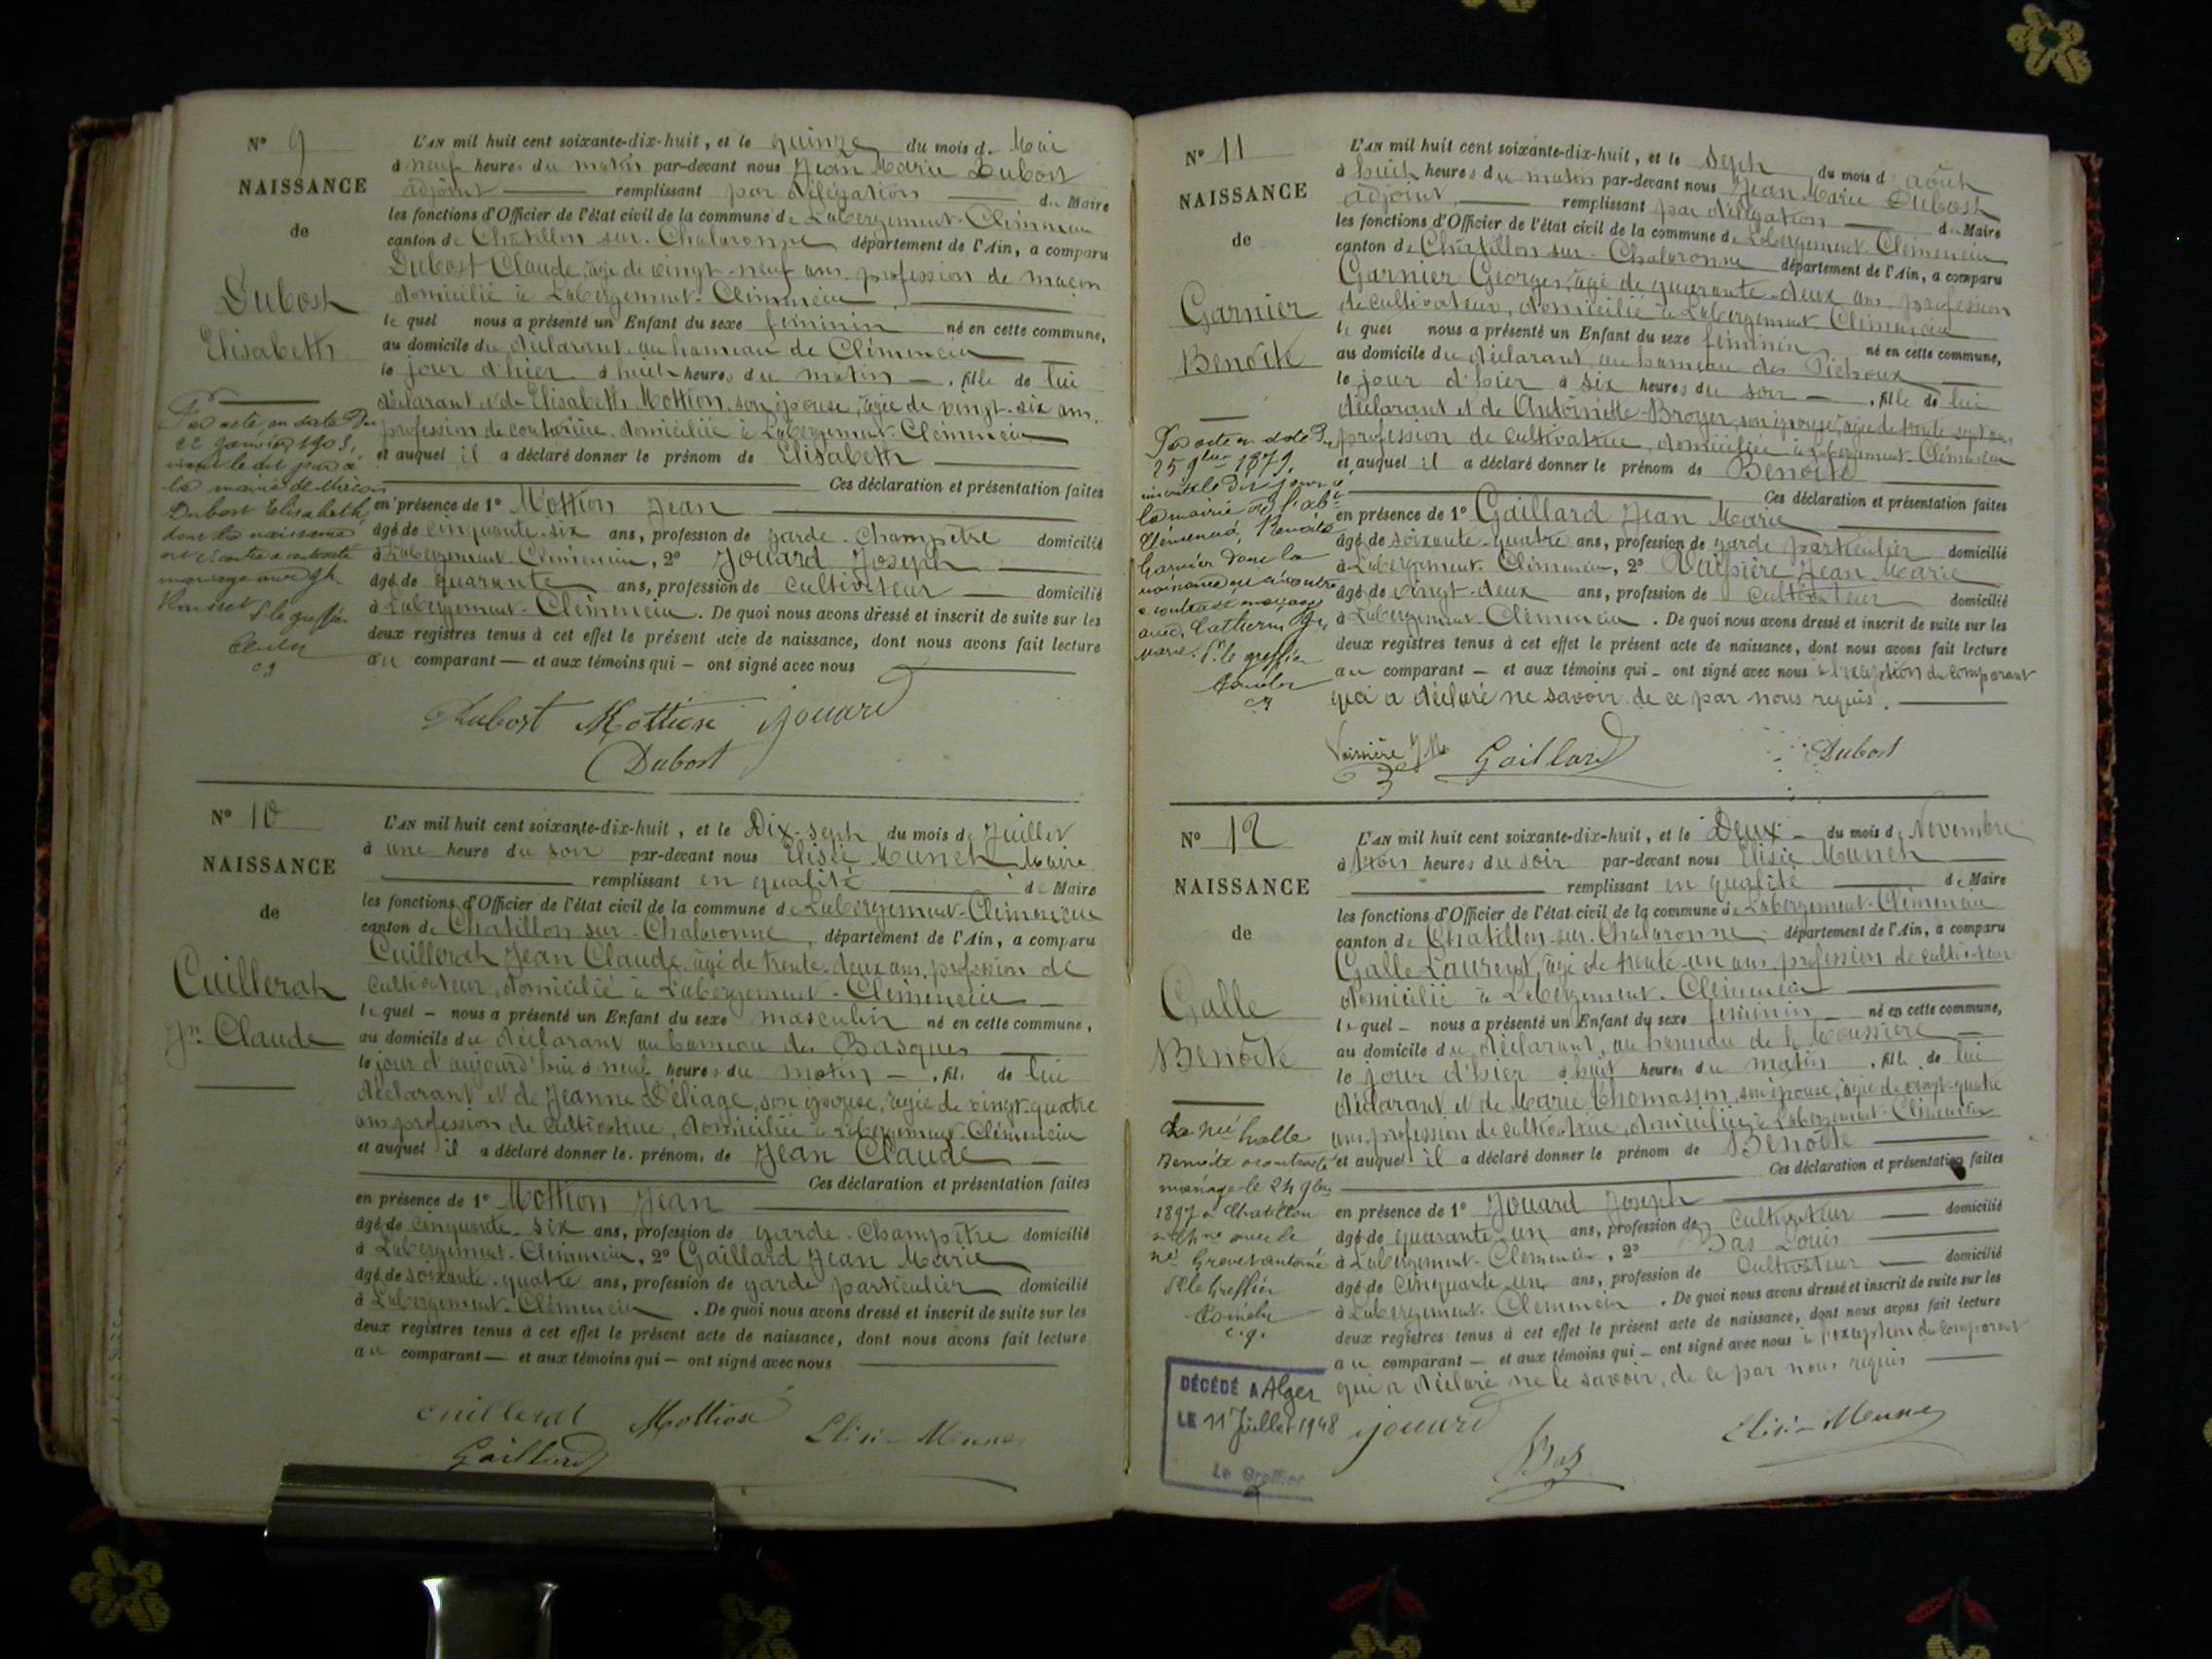 N° 9
NAISSANCE
de
Dubost
Elisabeth
Par acte en date du
22 janvier 1903,
la mairie de
Dubost Elisabeth,
dont la naissance
est ci contre a contracté
mariage avec
Rousset P. le greffier
L'AN mil huit cent soixante-dix-huit, et le quinze du mois de Mai
à neuf heures du matin par-devant nous Jean Marie Dubost
adjoint remplissant par délégation du Maire
les fonctions d'Officier de l'état civil de la commune de L'abergement-Clémencia
canton de Châtillon sur-Chalaronne département de l'Ain, a comparu
Dubost Claude, âgé de vingt-neuf ans, profession de maçon
domicilié à L'abergement-Clémencia
lequel nous a présenté un Enfant du sexe féminin né en cette commune,
au domicile du déclarant, au hameau de Clémencia
le jour d'hier à huit heures du matin, fille de lui
déclarant et de Elisabeth Mottion, son épouse, âgée de vingt-six ans,
profession de couturière, domiciliée à L'abergement-Clémencia
et auquel il a déclaré donner le prénom de Elisabeth
Ces déclaration et présentation faites
en présence de 1° Mottion Jean
âgé de cinquante-six ans, profession de garde-Champêtre domicilié
à L'abergement-Clémencia, 2° Jouard Joseph
âgé de quarante ans, profession de cultivateur domicilié
à L'abergement-Clémencia. De quoi nous avons dressé et inscrit de suite sur les
deux registres tenus à cet effet le présent acte de naissance, dont nous avons fait lecture
au comparant — et aux témoins qui — ont signé avec nous
Dubost Mottion Jouard
Dubost
N° 10
NAISSANCE
de
Cuillerat
Jn Claude
L'AN mil huit cent soixante-dix-huit, et le Dix-sept du mois de Juillet
à une heure du soir par-devant nous Elisée Munet Maire
remplissant en qualité de Maire
les fonctions d'Officier de l'état civil de la commune de L'abergement-Clémencia
canton de Chatillon sur-Chalaronne, département de l'Ain, a comparu
Cuillerat Jean Claude, âgé de trente-deux ans, profession de
cultivateur, domicilié à L'abergement-Clémencia
lequel — nous a présenté un Enfant du sexe masculin né en cette commune,
au domicile du déclarant au hameau des Basques
le jour d'aujourd'hui à neuf heures du matin —, fils de lui
déclarant et de Jeanne Déliage, son épouse, âgée de vingt-quatre
ans profession de cultivatrice, domiciliée à L'abergement-Clémencia
et auquel il a déclaré donner le prénom de Jean Claude
Ces déclaration et présentation faites
en présence de 1° Mottion Jean
âgé de cinquante-six ans, profession de garde-Champêtre domicilié
à L'abergement-Clémencia, 2° Gaillard Jean Marie
âgé de soixante-quatre ans, profession de garde particulier domicilié
à L'abergement-Clémencia. De quoi nous avons dressé et inscrit de suite sur les
deux registres tenus à cet effet le présent acte de naissance, dont nous avons fait lecture
au comparant — et aux témoins qui — ont signé avec nous
Cuillerat Mottion
Gaillard
N° 11
NAISSANCE
de
Garnier
Benoite
Par acte en date du
25 9bre 1879,
la mairie de
Clémencia, Benoite
Garnier dont la
naissance est ci contre
a contracté mariage
avec
P. le greffier
L'AN mil huit cent soixante-dix-huit, et le sept du mois d'août
à huit heures du matin par-devant nous Jean Marie Dubost
adjoint, remplissant par délégation du Maire
les fonctions d'Officier de l'état civil de la commune de L'abergement-Clémencia
canton de Châtillon sur-Chalaronne département de l'Ain, a comparu
Garnier Georges, âgé de quarante-deux ans, profession
de cultivateur, domicilié à L'abergement-Clémencia
lequel nous a présenté un Enfant du sexe féminin, né en cette commune,
au domicile du déclarant, au hameau des Pichoux
le jour d'hier à six heures du soir —, fille de lui
déclarant et de Antoinette Broyer, son épouse, âgée de trente-sept ans,
profession de cultivatrice, domiciliée à L'abergement-Clémencia
et auquel il a déclaré donner le prénom de Benoite
Ces déclaration et présentation faites
en présence de 1° Gaillard Jean Marie
âgé de soixante-quatre ans, profession de garde particulier domicilié
à L'abergement-Clémencia, 2° Vaissière Jean Marie
âgé de vingt-deux ans, profession de cultivateur domicilié
à L'abergement-Clémencia. De quoi nous avons dressé et inscrit de suite sur les
deux registres tenus à cet effet le présent acte de naissance, dont nous avons fait lecture
au comparant — et aux témoins qui — ont signé avec nous à l'exception du comparant
qui a déclaré ne savoir de ce par nous requis.
Vaissière J M Gaillard Dubost
N° 12
NAISSANCE
de
Galle
Benoite
La née Galle
Benoite a contracté
mariage le 24 9bre
1897 à Chatillon
né Grevet antoine
P. le Greffier
DÉCÉDÉ A Alger
LE 11 Juillet 1948
Le Greffier
L'AN mil huit cent soixante-dix-huit, et le Deux — du mois de Novembre
à trois heures du soir par-devant nous Elisée Munet
remplissant en qualité de Maire
les fonctions d'Officier de l'état civil de la commune de L'abergement-Clémencia
canton de Chatillon-sur-Chalaronne, département de l'Ain, a comparu
Galle Laurent, âgé de trente-un ans, profession de cultivateur
domicilié à L'abergement-Clémencia
lequel — nous a présenté un Enfant du sexe féminin — né en cette commune,
au domicile du déclarant, au hameau de la Poussière
le jour d'hier à huit heures du matin, fille de lui
déclarant et de Marie Thomasson, son épouse, âgée de vingt-quatre
ans, profession de cultivatrice, domiciliée à L'abergement-Clémencia
et auquel il a déclaré donner le prénom de Benoite
Ces déclaration et présentation faites
en présence de 1° Jouard Joseph
âgé de quarante-un ans, profession de cultivateur domicilié
à L'abergement-Clémencia, 2° Bas Louis
âgé de cinquante-un ans, profession de cultivateur domicilié
à L'abergement-Clémencia. De quoi nous avons dressé et inscrit de suite sur les
deux registres tenus à cet effet le présent acte de naissance, dont nous avons fait lecture
au comparant — et aux témoins qui — ont signé avec nous à l'exception du comparant
qui a déclaré ne le savoir, de ce par nous requis
Jouard Bas